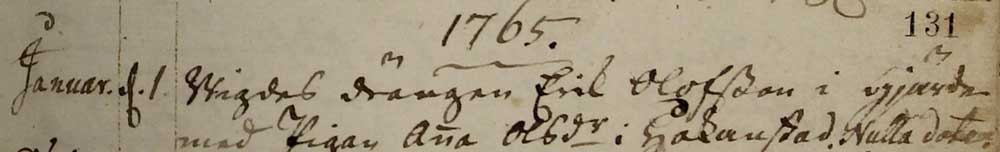 1765.
131
Januar. d. 1 Wigdes drängen Erik Olofsson i Gjärde
med Pigan Aña Olsdr i Håkanstad. Nulla dote.